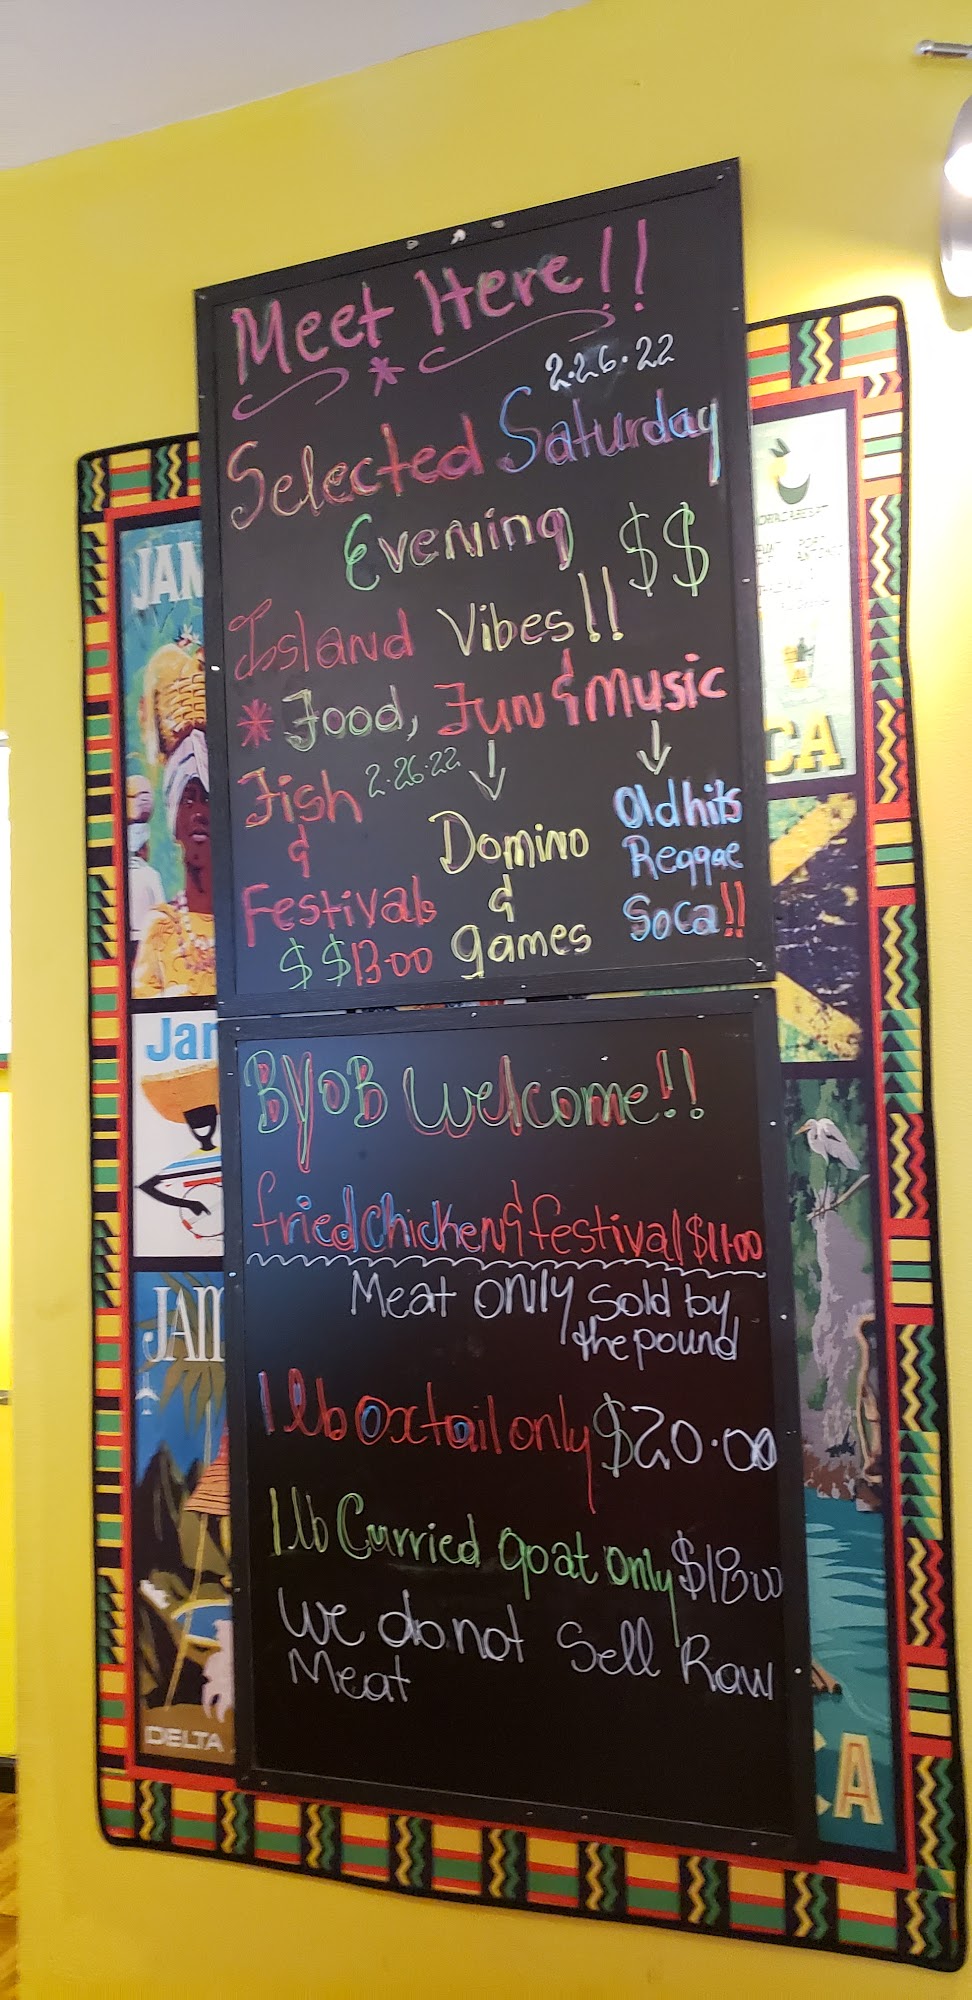 Meet Here!!
2.26.22
Selected Saturday
Evening $$
Island Vibes!!
* Food, Fun & Music
Fish 2.26.22
&
Festivals
$$13.00
Domino
&
games
Old hits
Reggae
Soca!!
BYOB Welcome!!
fried chicken & festival $11.00
Meat onily sold by
the pound
1 lb Oxtail only $20.00
1 lb Curried goat only $18.00
We do not Sell Raw
Meat
JAM
Jar
JAM
DELTA
CA
A